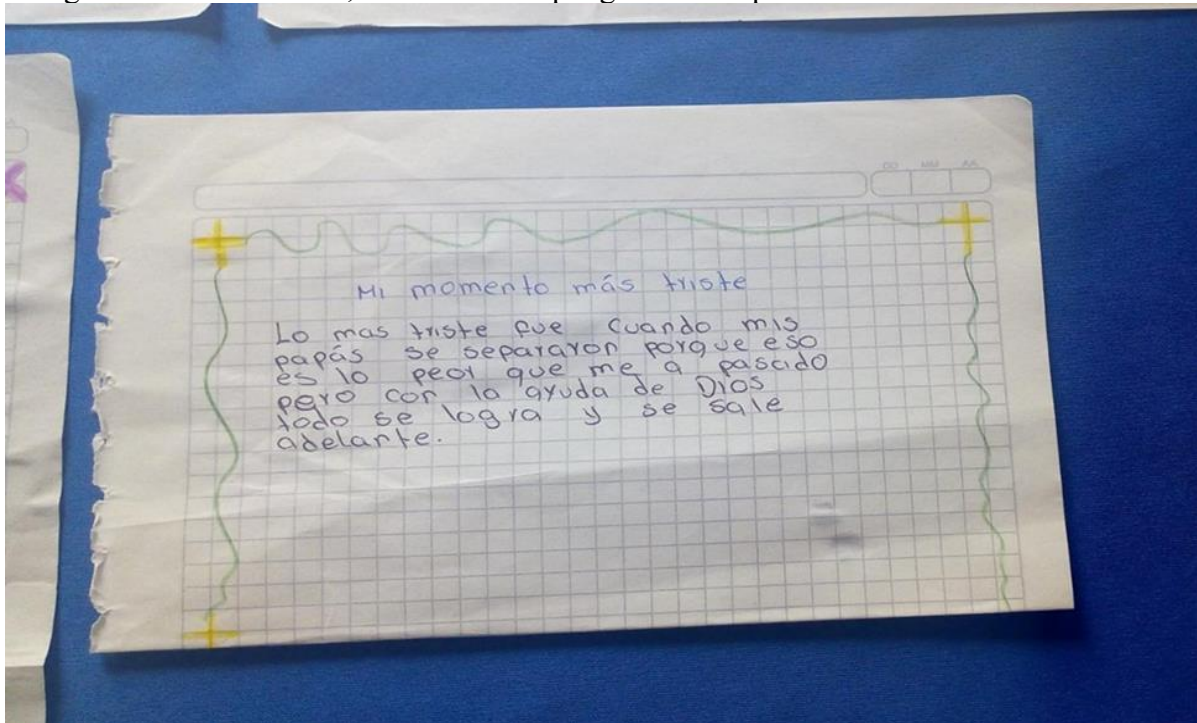 DD MM AA
Mi momento más triste
Lo mas triste fue cuando mis
papás se separaron porque eso
es lo peor que me a pasado
pero con la ayuda de Dios
todo se logra y se sale
adelante.